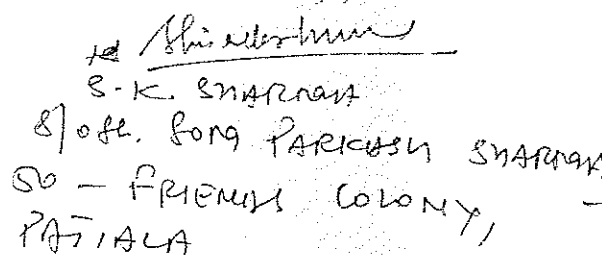 S.K. SHARMA
S/o Sh. Som PARKASH SHARMA
50 - FRIENDS COLONY,
PATIALA